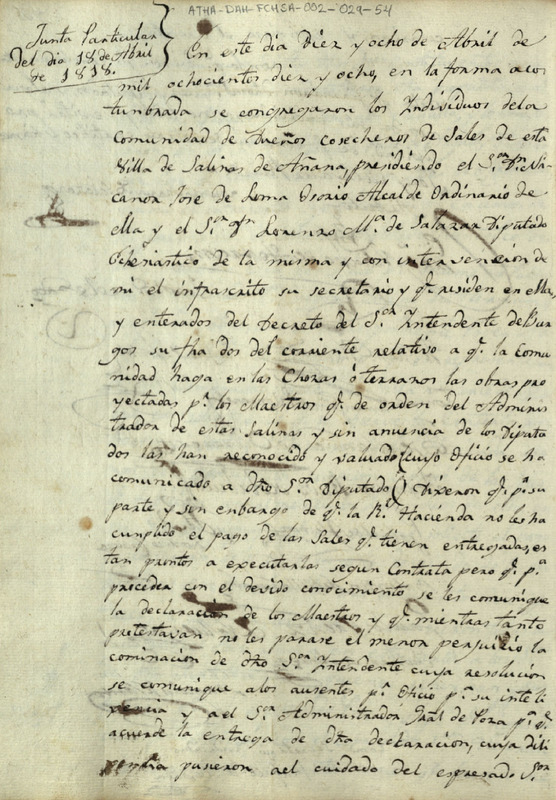 ATHA-DAH-FCHSA-002-029-54
Junta Particular
del dia 18 de Abril
de 1818.
En este dia Diez y ocho de Abril de
mil ochocientos diez y ocho, en la forma acos
tunbrada se congregaron los Individuos dela
Comunidad de Dueños cosecheros de Sales de esta
Villa de Salinas de Añana, presidiendo el S.or Dn. Ni
canor Jose de Loma Osorio Alcalde Ordinario de
ella y el S.or Dn Lorenzo M.a de Salazar Diputado
Eclesiastico de la misma y con intervencion de
mi el infrascrito su secretario y q.e residen en ella,
y enterados del Decreto del S.or Intendente de Bur
gos su fha dos del corriente relativo a q.e la Comu
nidad haga en las Chozas ó terrazos las obras pro
yectadas p.r los Maestros q.e de orden del Adminis
trador de estas Salinas y sin anuencia de los Diputa
dos las han reconocido y valuado (cuyo Oficio se ha
comunicado a dho S.or Diputado) Dixeron q.e p.r su
parte y sin enbargo de q.e la R.l Hacienda no les ha
cunplido el pago de las Sales q.e tienen entregadas, es
tan prontos a executarlas segun Contrata pero q.e p.a
proceder con el devido conocimiento se les comunique
la declaracion de los Maestros y q.e mientras tanto
protestavan no les parase el menor perjuicio la
cominacion de dho S.or Intendente cuya resolucion
se comunique alos ausentes p.r Oficio p.a su inteli
gencia y ael S.or Administrador Gral de Poza p.a q.e
acuerde la entrega de dha declaracion, cuya dili
gencia pusieron ael cuidado del espresado S.or